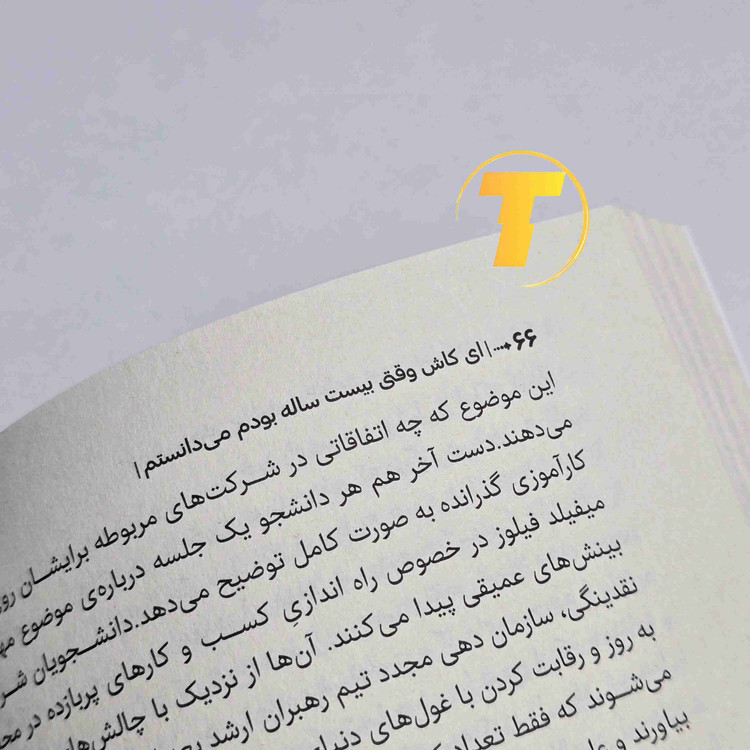 T
۶۶ ای کاش وقتی بیست ساله بودم می‌دانستم
این موضوع که چه اتفاقاتی در شرکت‌های مربوطه برایشان
می‌دهند.دست آخر هم هر دانشجو یک جلسه درباره‌ی موضوع
کارآموزی گذرانده به صورت کامل توضیح می‌دهد.دانشجویان
میفیلد فیلوز در خصوص راه اندازیِ کسب و کارهای پربازده در
بینش‌های عمیقی پیدا می‌کنند. آن‌ها از نزدیک با
نقدینگی، سازمان دهی مجدد تیم رهبران ارشد
به روز و رقابت کردن با غول‌های
می‌شوند که فقط
بیاورند و